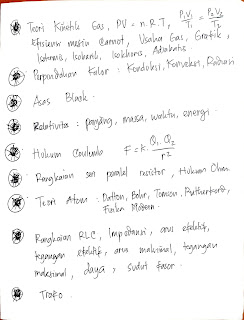 Teori Kinetik Gas, PV = n.R.T, P₁V₁/T₁ = P₂V₂/T₂
Efisiensi mesin Carnot, Usaha Gas, Grafik,
Isotermis, Isobarik, Isokhoris, Adiabatis.
Perpindahan Kalor : Konduksi, Konveksi, Radiasi
Asas Black.
Relativitas : panjang, massa, waktu, energi.
Hukum Coulumb F = k. Q₁.Q₂/r²
Rangkaian seri paralel resistor, Hukum Ohm.
Teori Atom : Dalton, Bohr, Tomson, Rutherford,
Fisika Modern.
Rangkaian RLC, Impedansi, arus efektif,
tegangan efektif, arus maksimal, tegangan
maksimal, daya, sudut fasor.
Trafo.